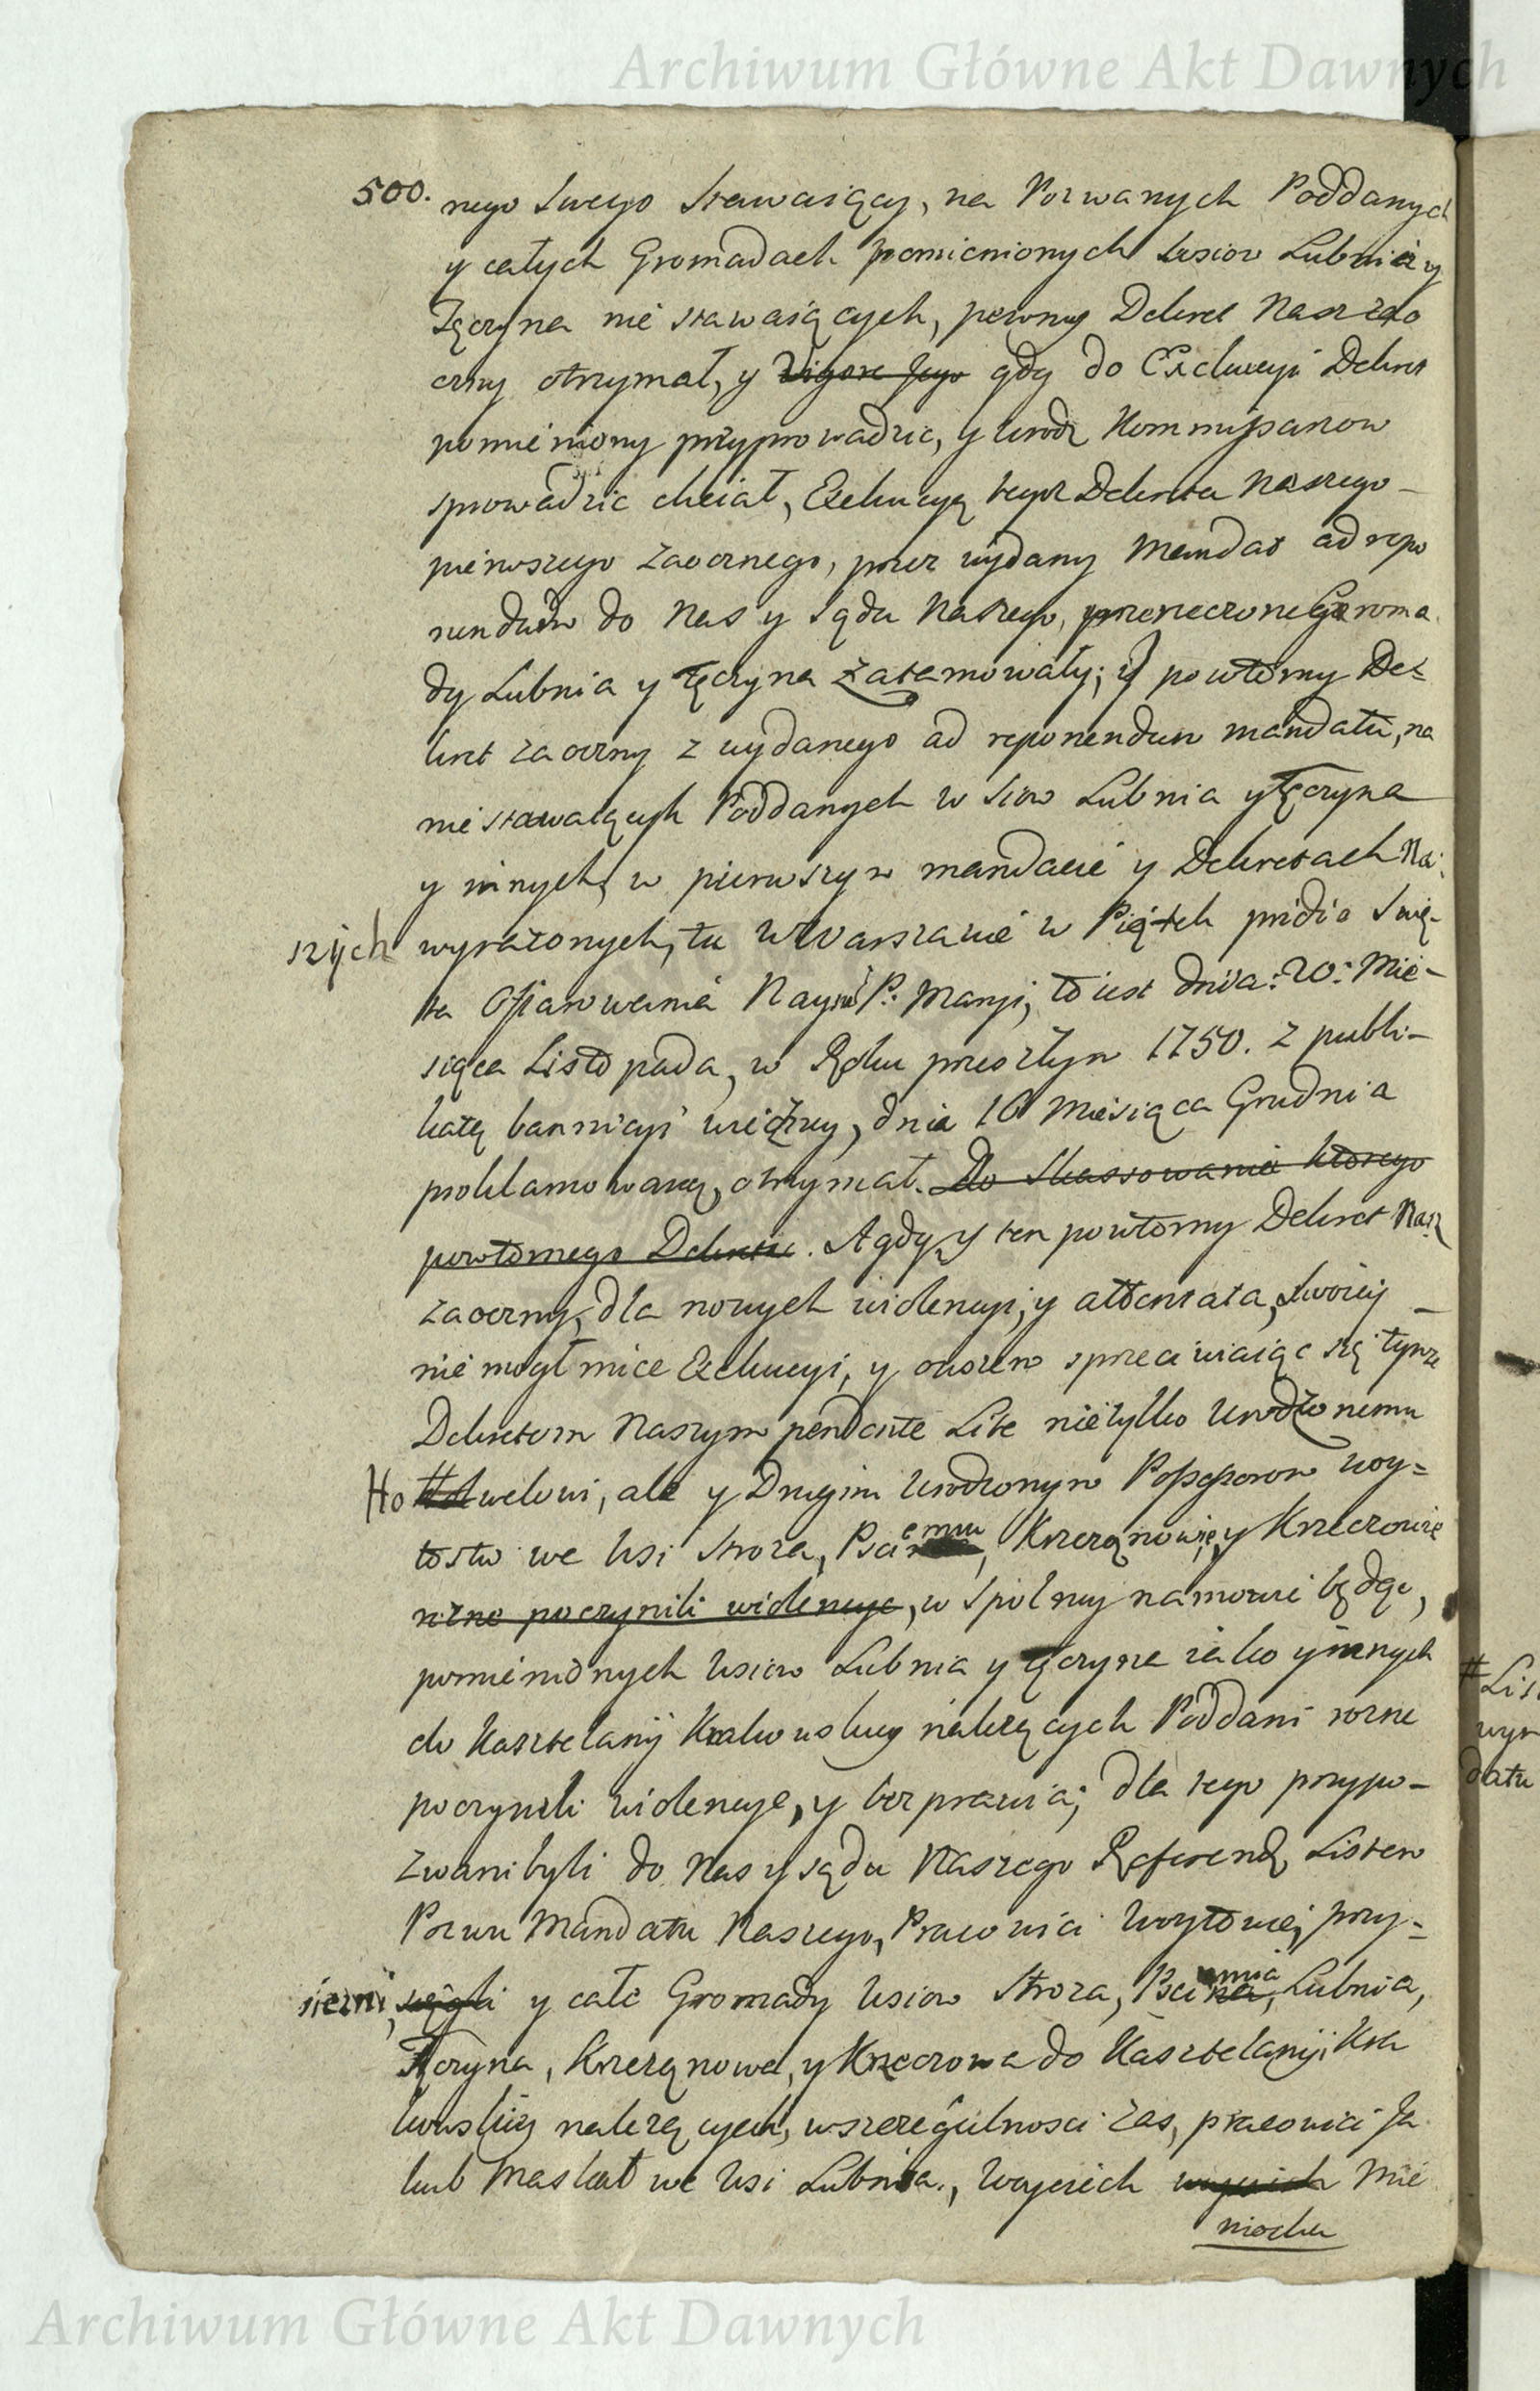 Archiwum Główne Akt Dawnych
500. nego swego stawaiący, na Pozwanych Poddanych
y całych Gromadach pomienionych wsiow Lubnia y
Tęczyna nie stawaiących, pewny Dekret Nasz zao
czny otrzymał, y vigore jego gdy do Exekucyi Dekret
pomieniony przyprowadzic, y urodz Kommissarzow
sprowadzic chciał, Exekucyą tegoz Dekretu Naszego
pierwszego zaocznego, przez wydany Mandat ad repo
nendum do Nas y Sądu Naszego, przerzeczone Groma
dy Lubnia y Tęczyna zatamowały; y powtorny De=
kret zaoczny z wydanego ad reponendum mandatu, na
nie stawaiących Poddanych w siow Lubnia y Tęczyna
y innych, w pierwszym mandacie y Dekretach Na:
szych wyrazonych, tu w Warszawie w Piątek pridie Swię-
ta Ofiarowania Nayś P. Maryi, to iest dnia: 20: Mie-
siąca Listopada, w Roku przeszłym 1750. z publi-
katą bannicyi wieczney, dnia 10 Miesiąca Grudnia
proklamowaną, otrzymał. Do skassowania ktorego
powtornego Dekretu. A gdy y ten powtorny Dekret Nasz
zaoczny, dla nowych wiolencyi, y attentata, swoiey
nie mogł miec Exekucyi, y owszem sprzeciwiaiąc się tymze
Dekretom Naszym pendente Lite nie tylko Urodzonemu
Ho welowi, ale y Drugim Urodzonym Possessorom woy=
tostw we wsi Stroza, Pcimemu, Krzczonowie, y Krzeczowie
rozne poczynili wiolencye, w spolney namowie będąc,
pomienionych wsiow Lubnia y Tęczyna iako y innych
do Kasztelanij Krakowskiey nalezących Poddani rozne
poczynili wiolencye, y bezprawia; dla tego przypo-
zwani byli do Nas y sądu Naszego Referend. Listem
Pozwu Mandatu Naszego, Pracowici Woytowie, przy=
sięzni, y całe Gromady wsiow Stroza, Pcimia, Lubnia,
Tęczyna, Krzczonowa, y Krzeczowa do Kasztelanij Kra
kowskiey nalezących, w szczegulnosci zas, pracowici Ja
kub Maslat we wsi Lubnia., Woyciech woyciech Mie
niocha
# List
wyr
datu
Archiwum Główne Akt Dawnych